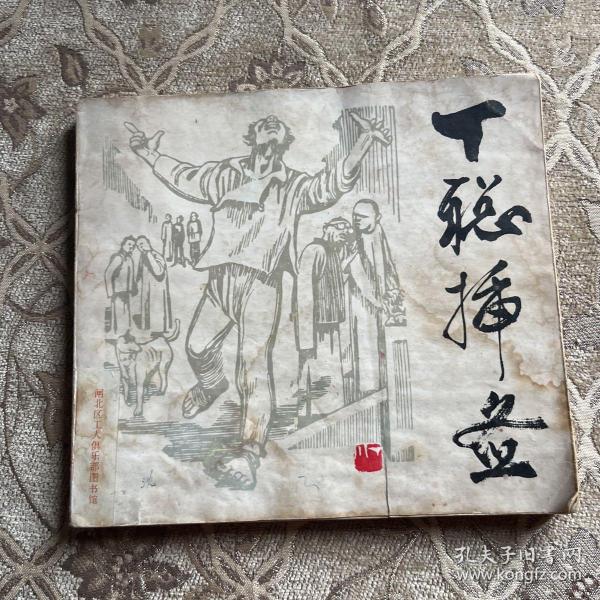 丁聪插画
闸北区工人俱乐部图书馆
孔夫子旧书网
www.kongfz.com